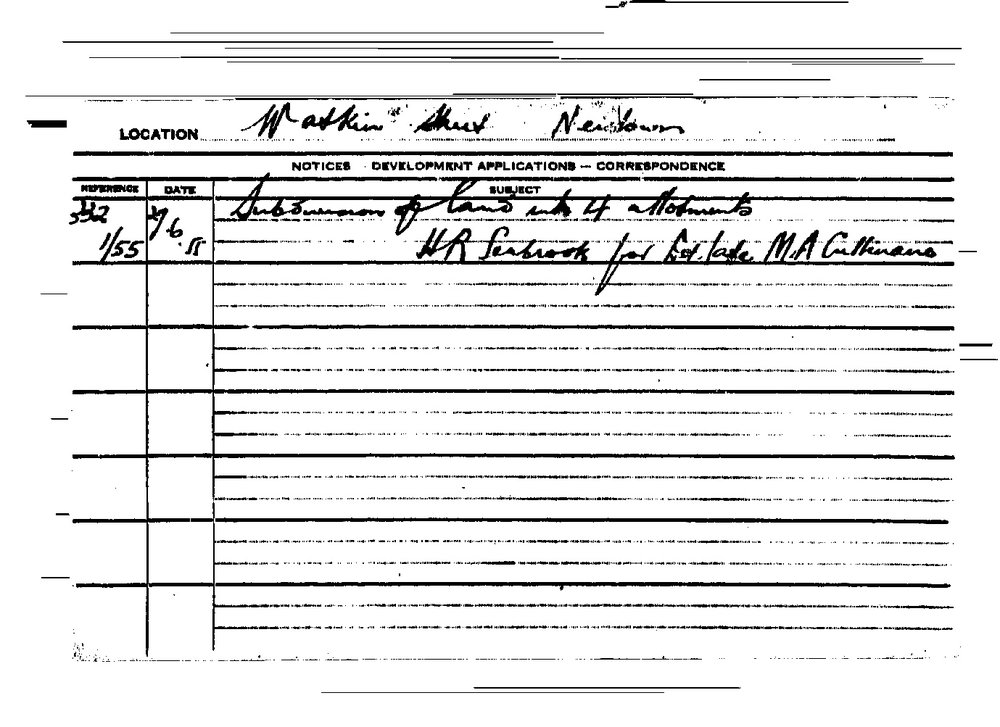 LOCATION Watkin Street Newtown
NOTICES DEVELOPMENT APPLICATIONS — CORRESPONDENCE
REFERENCE DATE SUBJECT
332 Subdivision of land into 4 allotments
1/55 6 55 H R Seabrook for Est. late M.A Cullinane